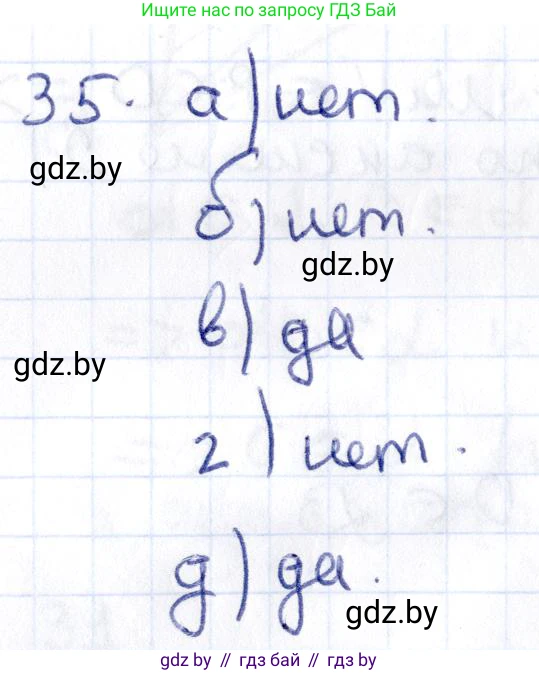 Ищите нас по запросу ГДЗ Бай
35. а) нет.
gdz.by
б) нет.
gdz.by
в) да
gdz.by
г) нет.
д) да.
gdz.by
gdz by // гдз бай // гдз by